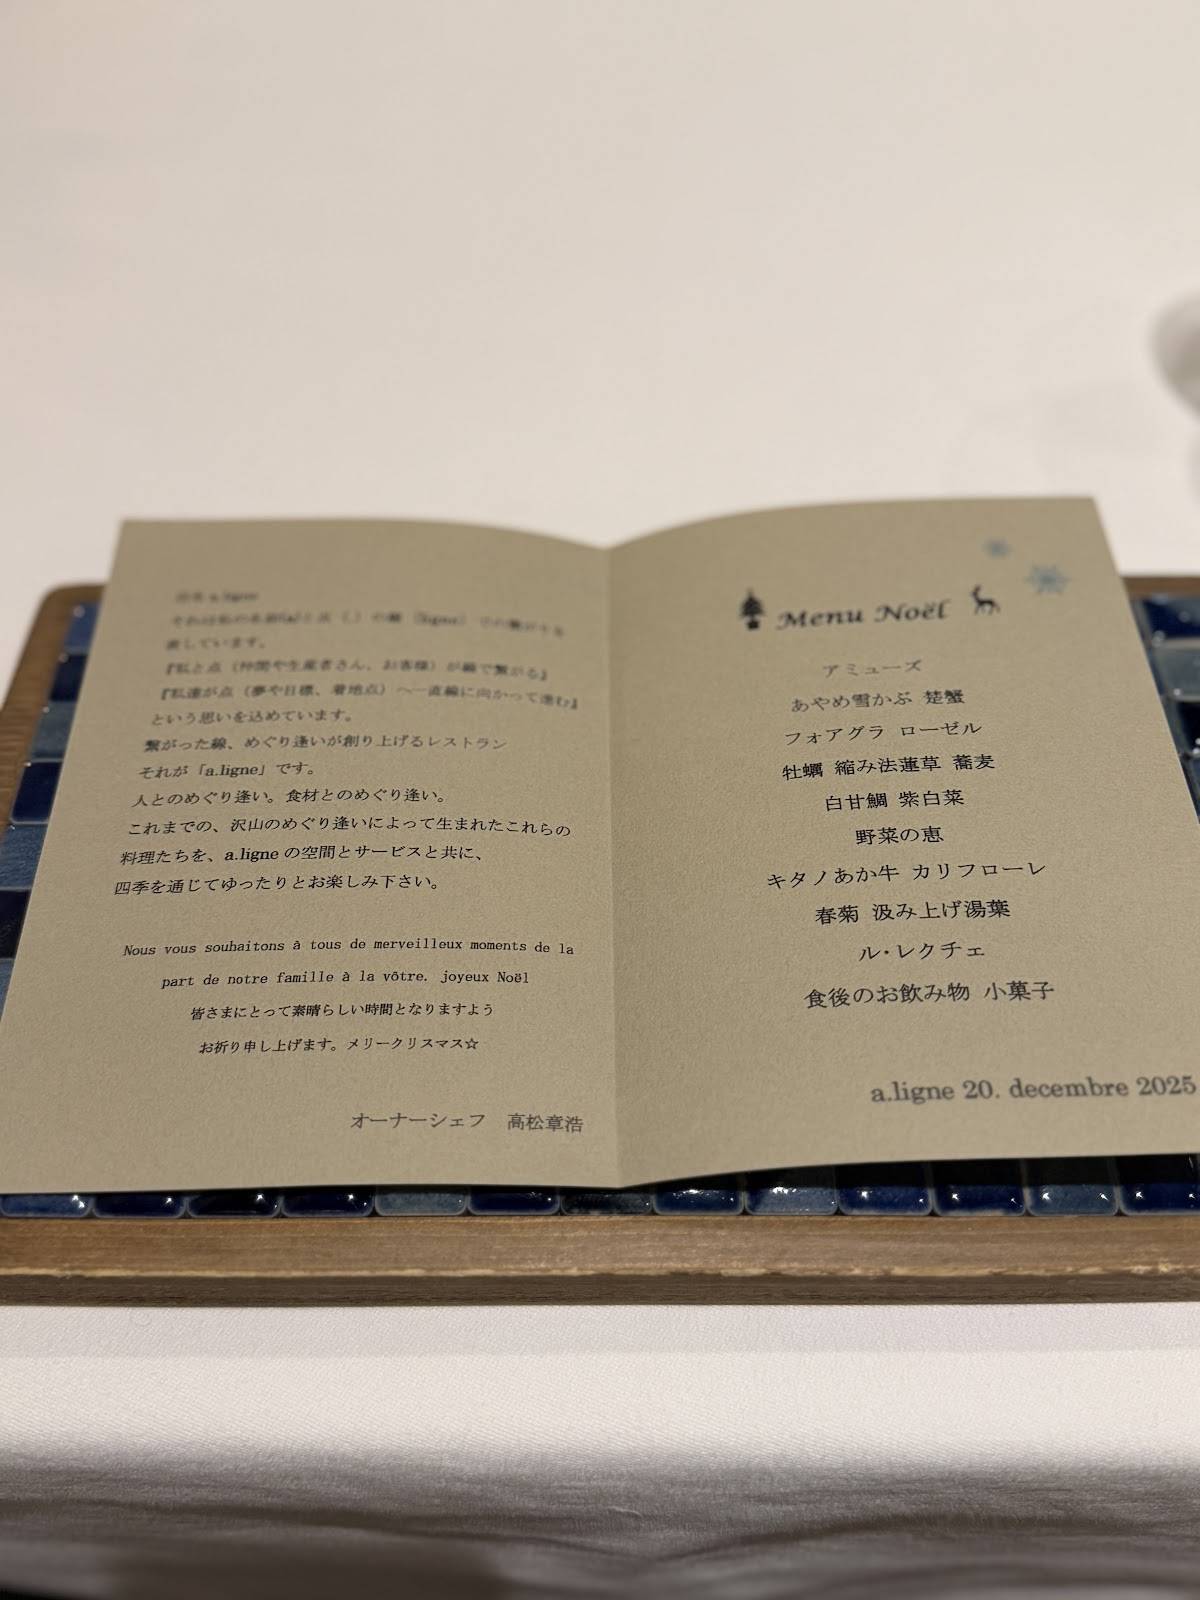 店名 a.ligne
それは私の名前(a)と点（.）の線（ligne）での繋がりを
表しています。
『私と点（仲間や生産者さん、お客様）が線で繋がる』
『私達が点（夢や目標、着地点）へ一直線に向かって進む』
という思いを込めています。
繋がった線、めぐり逢いが創り上げるレストラン
それが「a.ligne」です。
人とのめぐり逢い。食材とのめぐり逢い。
これまでの、沢山のめぐり逢いによって生まれたこれらの
料理たちを、a.ligne の空間とサービスと共に、
四季を通じてゆったりとお楽しみ下さい。
Nous vous souhaitons à tous de merveilleux moments de la
part de notre famille à la vôtre. joyeux Noël
皆さまにとって素晴らしい時間となりますよう
お祈り申し上げます。メリークリスマス☆
オーナーシェフ 高松章浩
Menu Noël
アミューズ
あやめ雪かぶ 楚蟹
フォアグラ ローゼル
牡蠣 縮み法蓮草 蕎麦
白甘鯛 紫白菜
野菜の恵
キタノあか牛 カリフローレ
春菊 汲み上げ湯葉
ル・レクチェ
食後のお飲み物 小菓子
a.ligne 20. decembre 2025